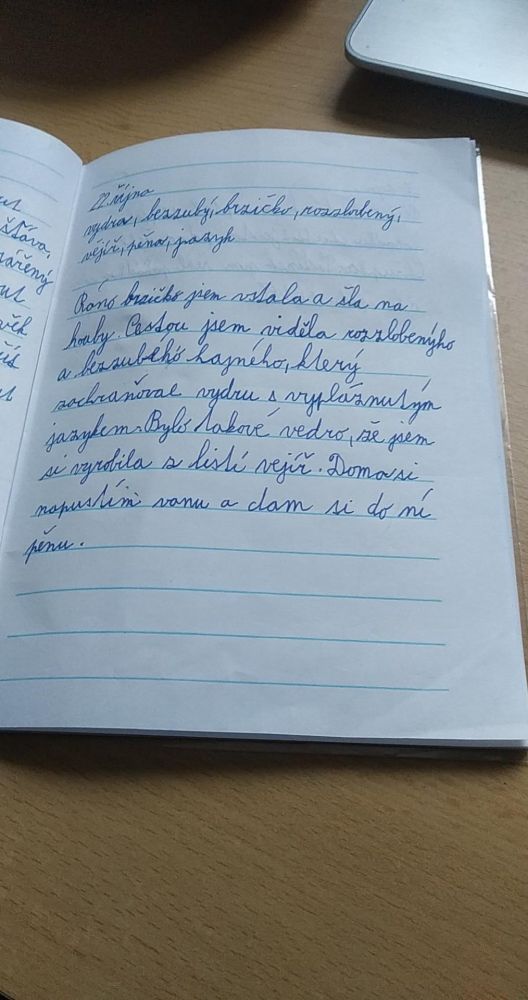 22. října
vydra, bezzubý, brzičko, rozzlobený,
vějíř, pěna, jazyk
Ráno brzičko jsem vstala a šla na
houby. Cestou jsem viděla rozzlobenýho
a bezzubého hajného, který
zachraňoval vydru s vypláznutým
jazykem. Bylo takové vedro, že jsem
si vyrobila z listí vejíř. Doma si
napustím vanu a dam si do ní
pěnu.